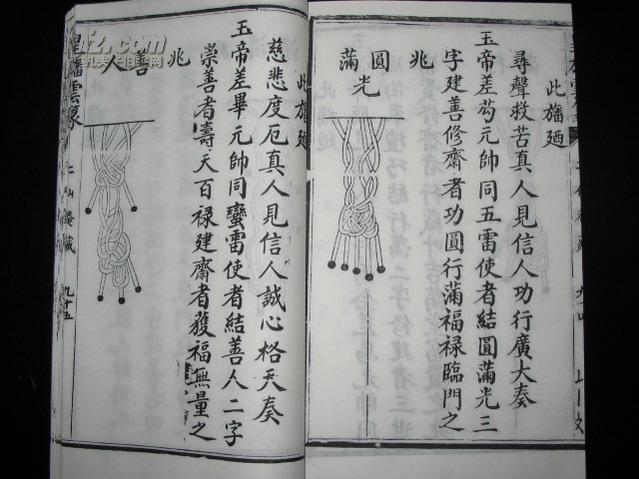 此旛廻
尋聲救苦真人見信人功行廣大奏
玉帝差苟元帥同五雷使者結圓滿光三
字建善修齋者功圓行滿福禄臨門之
兆
圓光
滿
此旛廻
慈悲度厄真人見信人誠心格天奏
玉帝差畢元帥同蠻雷使者結善人二字
崇善者壽天百禄建齋者獲福無量之
兆
善人
旛雲篆
九十五